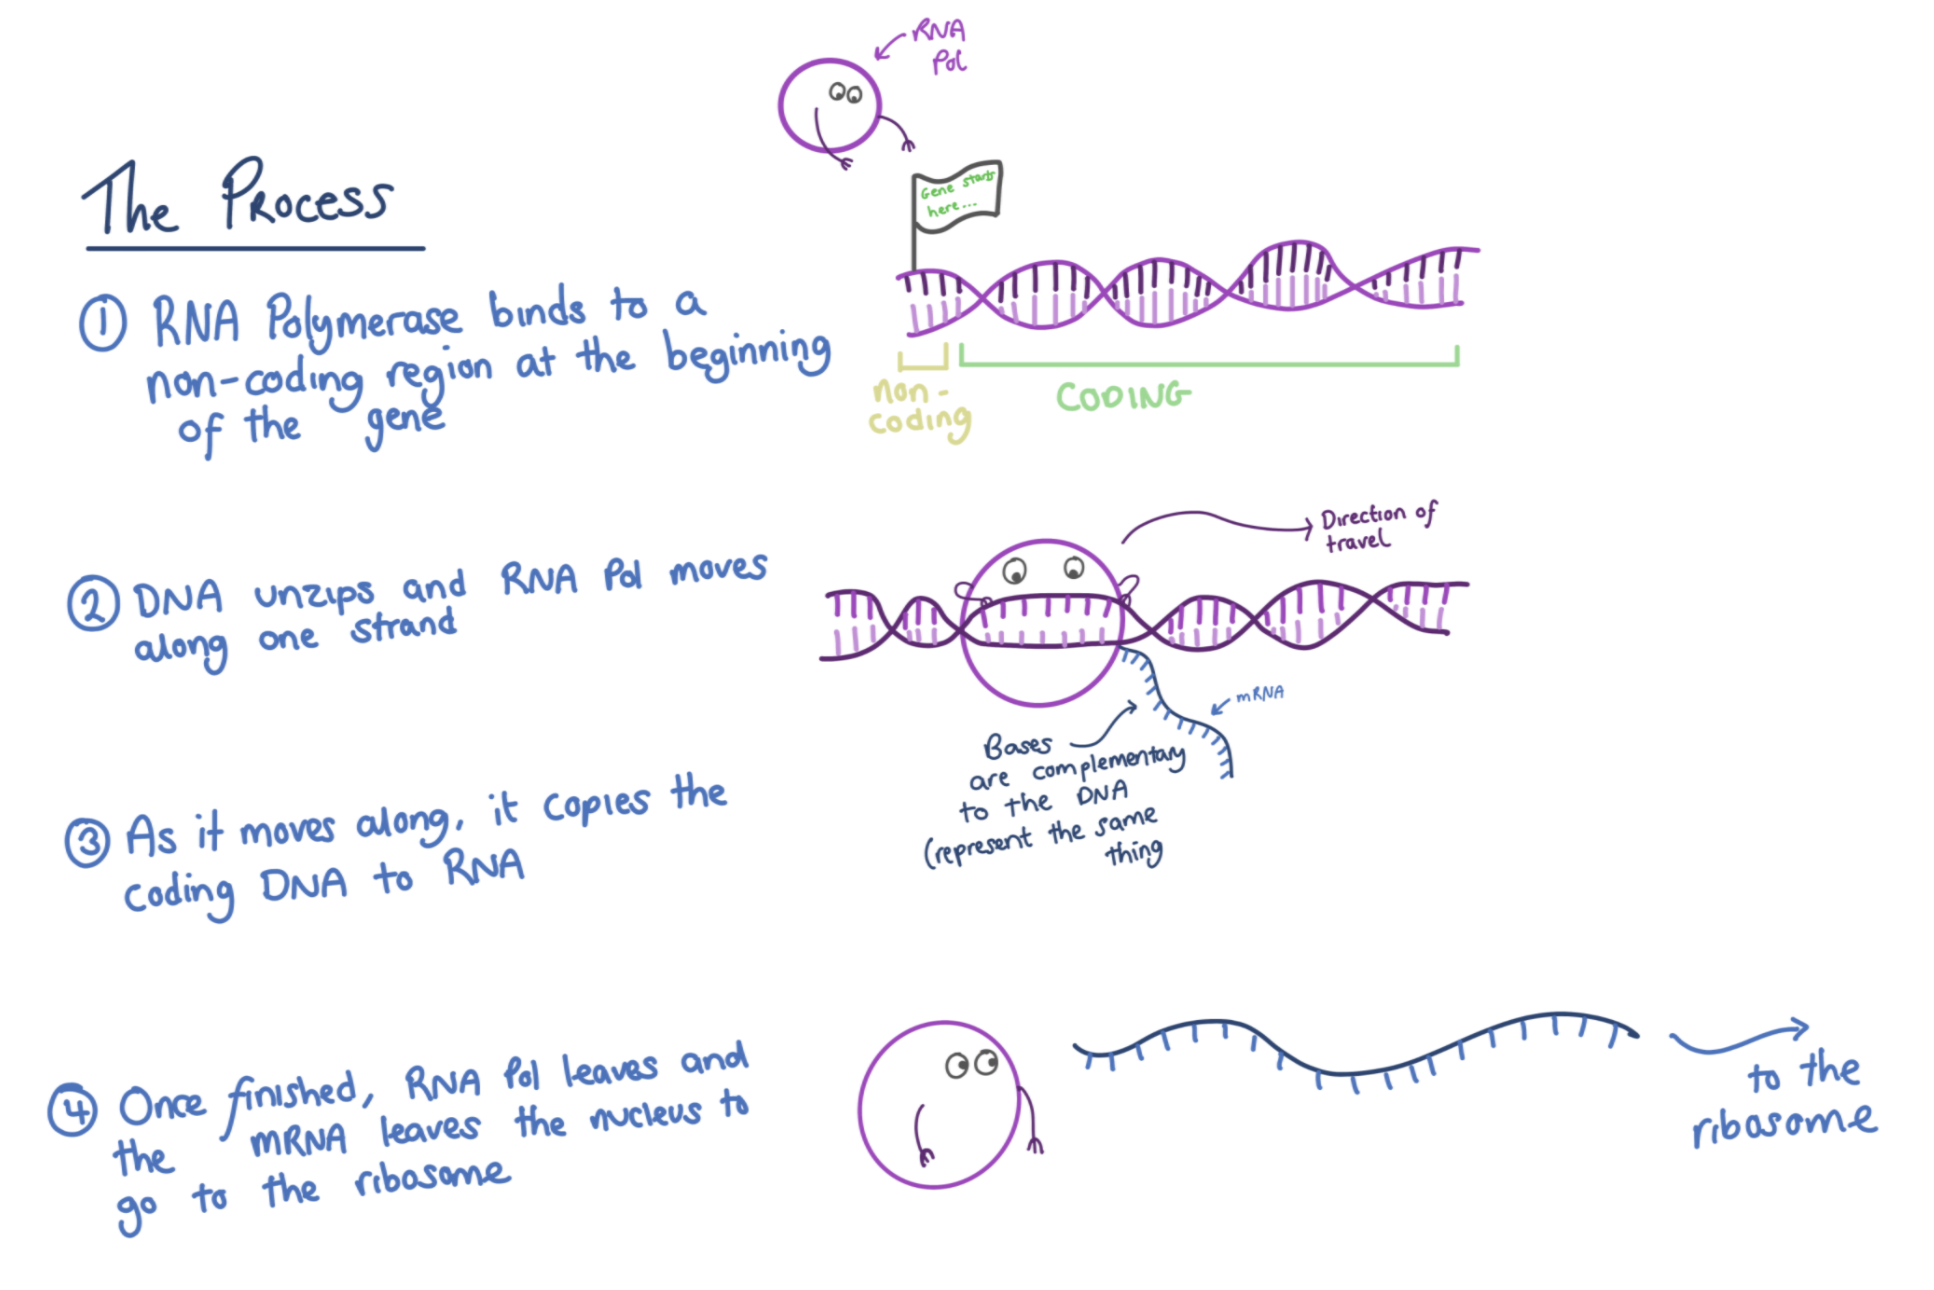 RNA
Pol
The Process
Gene starts
here...
① RNA Polymerase binds to a
non-coding region at the beginning
of the gene
non-
coding
CODING
Direction of
travel
② DNA unzips and RNA Pol moves
along one strand
mRNA
Bases
are complementary
to the DNA
(represent the same
thing
③ As it moves along, it copies the
coding DNA to RNA
④ Once finished, RNA Pol leaves and
the mRNA leaves the nucleus to
go to the ribosome
to the
ribosome